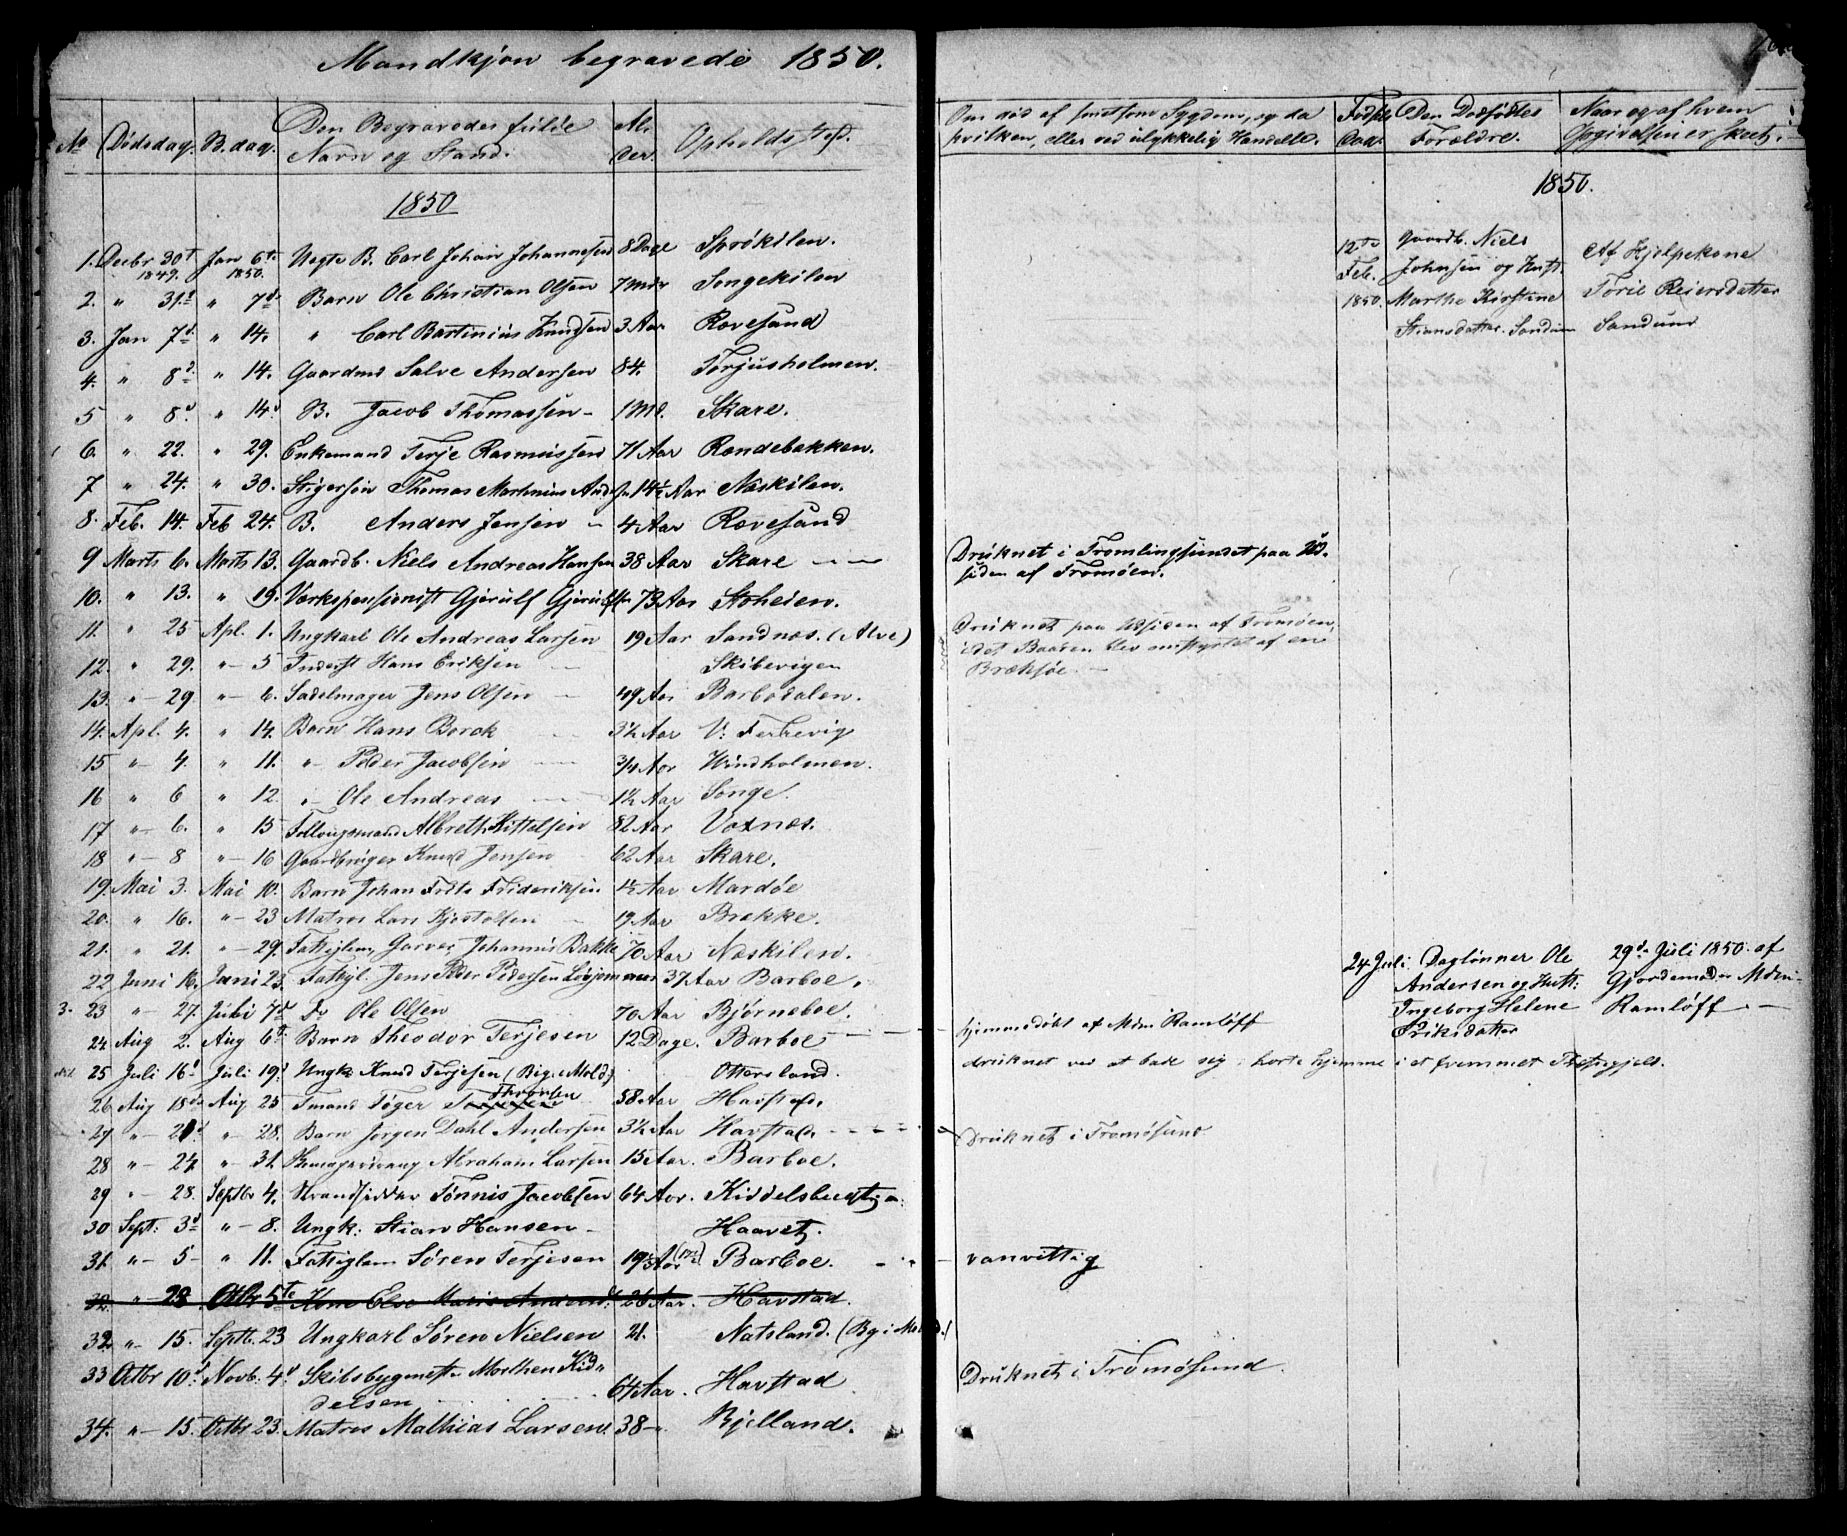 Mandkjøn begravede 1850.
No Dødsdag. B.dag. Den Begravedes fulde Navn og Stand. Alder. Opholds Sted.
1850
1. Decbr 30t 1849. Jan 6te 1850. Uegte B. Carl Johan Johannesen 8 Dage Sprøkilen.
2. " 31. " 7d Barn Ole Christian Olsen 7 Mdr Songekilen
3. Jan 7d " 14. " Carl Bartinius Knudsen 3 Aar Rovesand
4. " 8d " 14. Gaardmd Salve Andersen 84. Torjusholmen.
5 " 8d " 14d B. Jacob Thomassen - 1 Md. Skare.
6. " 22. " 29. Enkemand Terje Rasmussen 71 Aar Rændebakken.
7 " 24. " 30. Stigersøn Thomas Martinius 14½ Aar Næskilen.
8. Feb. 14. Feb 24. B. Anders Jensen - 4 Aar Rovesand
9 Marts 6. Marts 13. Gaardb. Niels Andreas Hansen 38 Aar Skare
10. " 13. " 19. Værkspensionist Gjerulf 73 Aar Stoheien.
11. " 25 Apl. 1. Ungkarl Ole Andreas Larsen 19 Aar Sandnæs. (Alve)
12. " 29. " 5 Inderst Hans Eriksen Skibevigen
13. " 29. " 6. Sadelmager Jens Olsen 49 Aar Barbodalen.
14. Apl. 4. " 14. Barn Hans Borck 3½ Aar
15 " 4. " 11. " Peder Jacobsen 3/4 Aar Windholmen.
16 " 6 " 12. " Ole Andreas 1½ Aar Songe.
17 " 6. " 15 Albreth Kittelsen 82 Aar Voxnæs.
18 " 8 " 16 Gaardbruger Knud Jensen 62 Aar Skare.
19. Mai 3. Mai 10. Barn Johan Frits Frideriksen 1½ Aar Mardøe
20. " 16. " 23 Matros Lars Kjøstolsen 19 Aar Brække.
21. " 21. " 29. Fattiglem Garver Johannis Bakke 70 Aar Næskilen.
22 Juni 16. Juni 23. Fattigl. Jens Peder Pedersen 37 Aar Barboe.
3. 23 " 27. Juli 7d Do Ole Olsen 70 Aar Bjørneboe.
24 Aug 2. Aug 6t Barn Theodor Terjesen 12 Dage. Barboe
25 Juli 16d Juli 19d Ungk Knud Terjesen (Big. i Mold) Ottersland.
26 Aug 18de Aug 25 Tmand Tøger Thronsen 58 Aar Havstad.
27 " " 28. Barn Jørgen Dahl Andersen 3½ Aar Havstad
28 " 24. " 31. Abraham Larsen 15 Aar. Barboe.
29 " 28. Septbr 4. Strandsidder Tønnis Jacobsen 64 Aar.
30 Sept: 3d " 8. Ungk: Stian Hansen - Haavet.
31. " 5 " 11. Fattiglem Søren Terjesen 19½ Aar Barboe.
32. " 28. Octbr 5te Kone Else Marie 26 Aar. Havstad.
32. " 15. Septb. 23 Ungkarl Søren Nielsen 21. Natsland.
33 Octbr 10d Novb: 4d Skibsbygmestr Morthen Kid-
delsen 64 Aar. Havstad
34. " 15. Octbr 23. Matros Mathias Larsen 38 Bjelland.
Om død af smitsom Sygdom, og da hvilken, eller ved ulykkelig Hændelse. Fødsels Dag. Den Dødfødtes Forældre. Naar og af hvem Opgivelsen er skeet.
1850.
12te Feb. 1850. Gaardb. Niels
Johnsen og Hust.
Marthe Kirstine
Stiansdatter. Sandum
Af Hjelpekone
Toril Reiersdatter
Sandum
Druknet i Tromlingsundet paa Ud-
siden af Tromøen.
Druknet paa Udsiden af Tromøen,
idet Baaden blev omstyrtet af en
Bræksøe. -
24 Juli. Daglønner Ole
Andersen og Hust:
Ingeborg Helene
Eriksdatter
29d Juli 1850. af
Gjordemoder Mdm
Ramløff
hjemmedøbt af Mdm Ramløff
druknet ved at bade sig; hørte hjemme i et fremmet Præstegjeld.
Druknet i Tromøsund.
vanvittig
Druknet i Tromøsund.